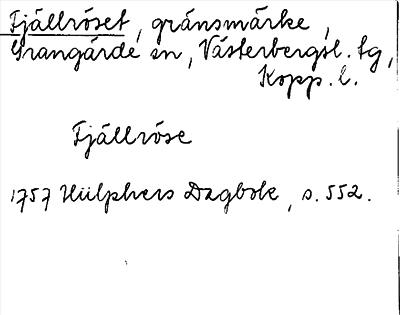 Fjällröset, gränsmärke,
Grangärde sn, Västerbergsl. tg,
Kopp. l.
Fjällröse
1757 Hülphers Dagbok, s. 552.